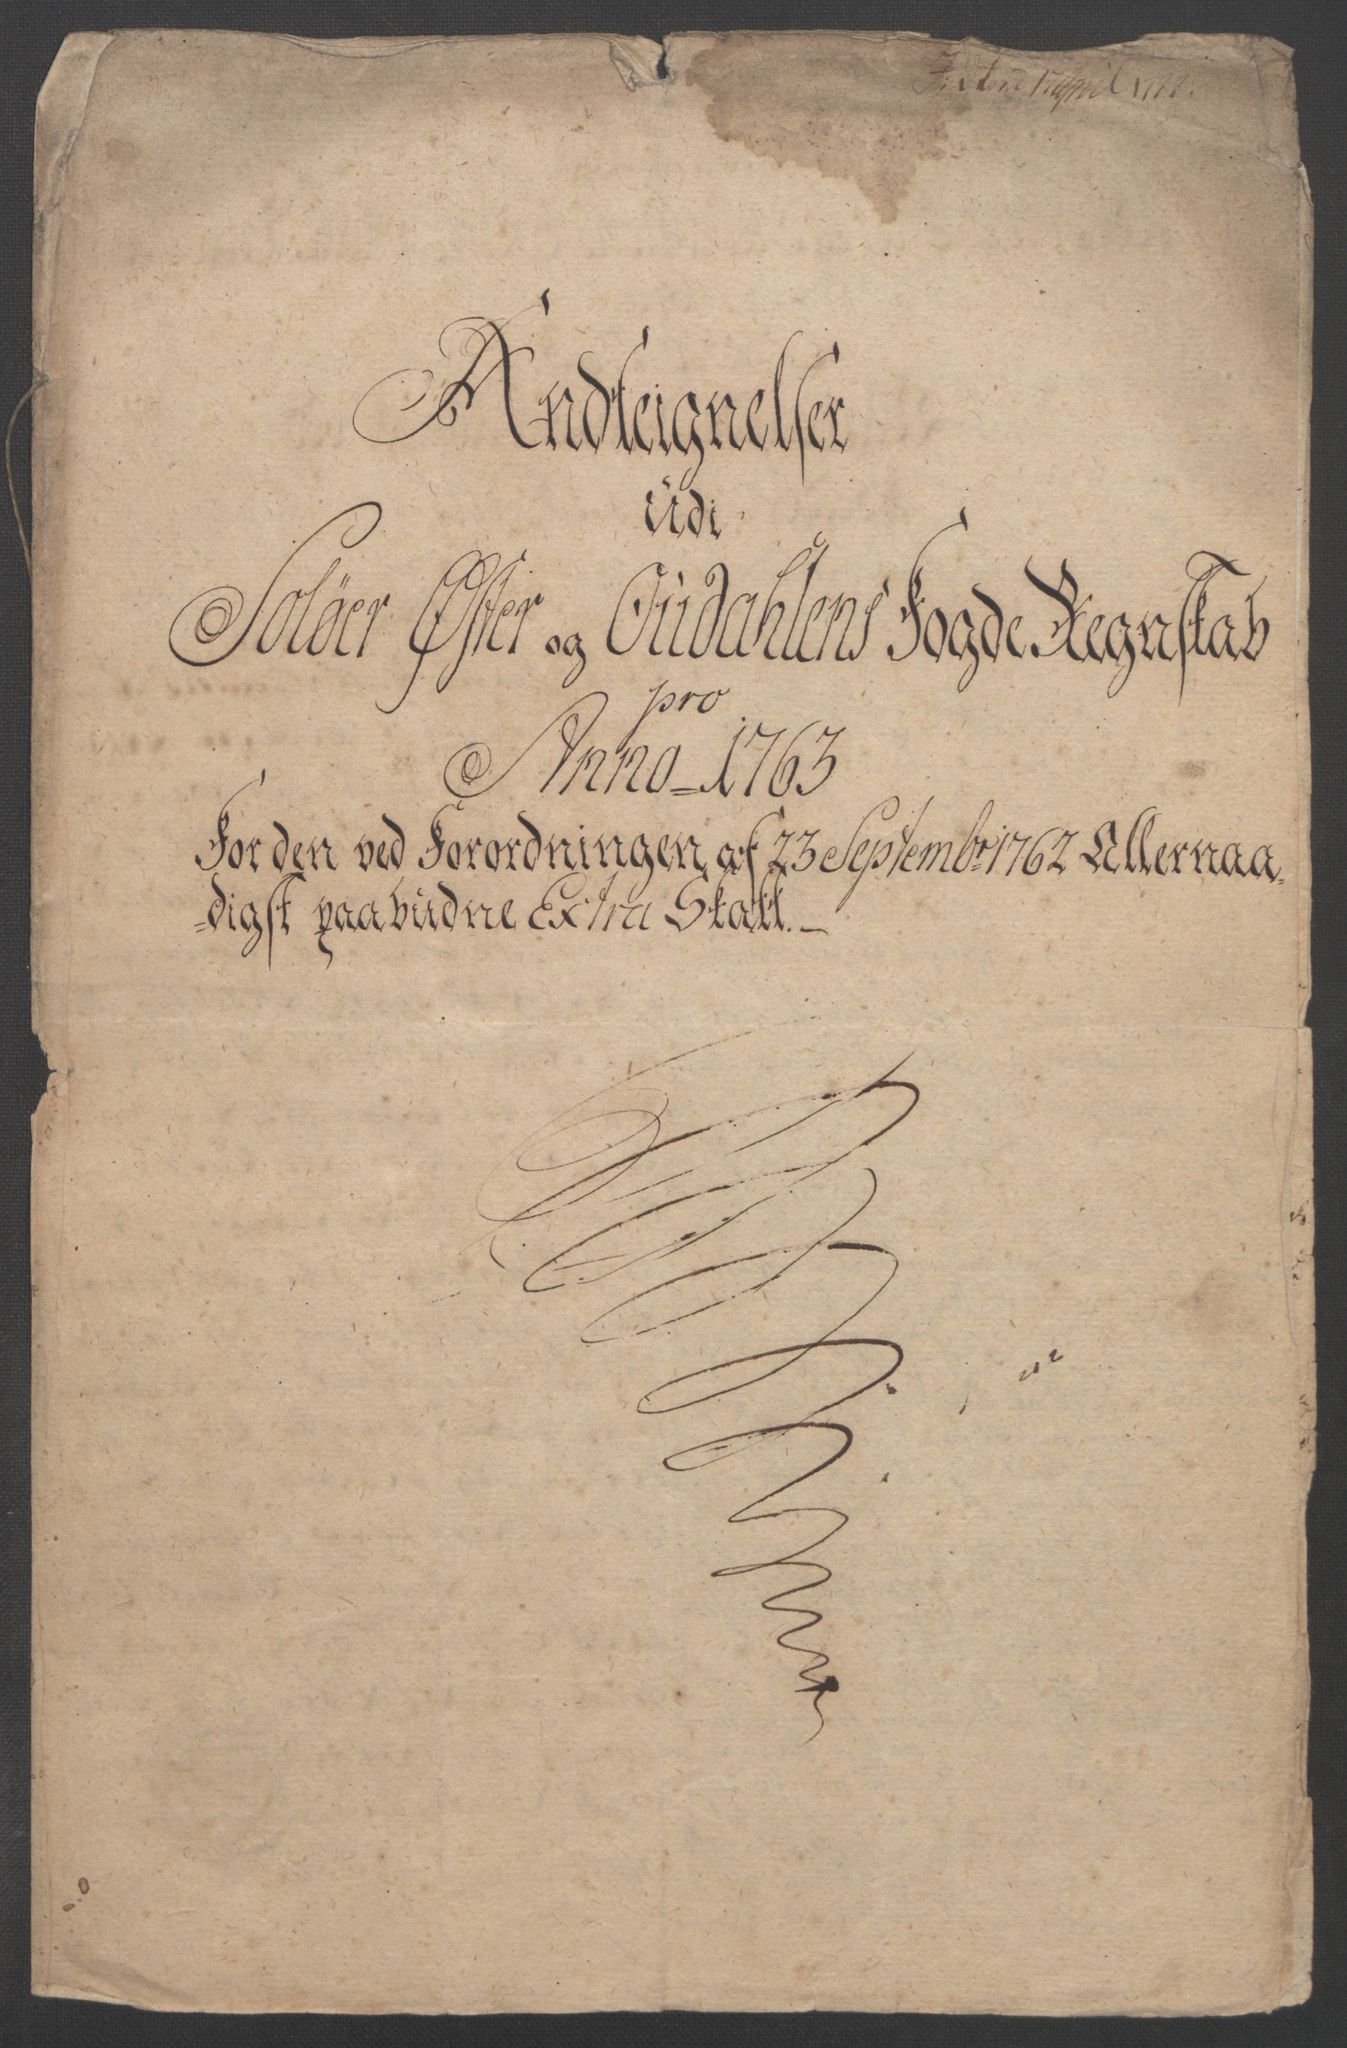 Andteignelser
Udi
Solöer Øster og Oudahlens Fogde Regnskab
pro
Anno 1763
For den ved Forordningen af 23 Septembr. 1762 Allernaa-
-digst paabudne Extra Skatt.